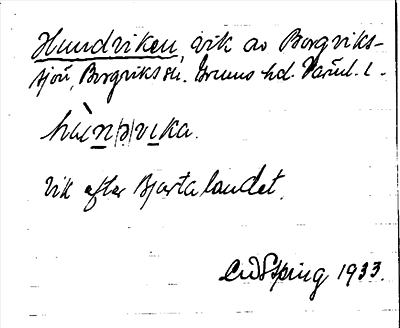 Hundviken, vik av Borgviks-
sjön, Borgviks sn. Grums hd. Värml. l.
hùn(n)vika.
Vik efter Bjartalandet.
Spring 1933.